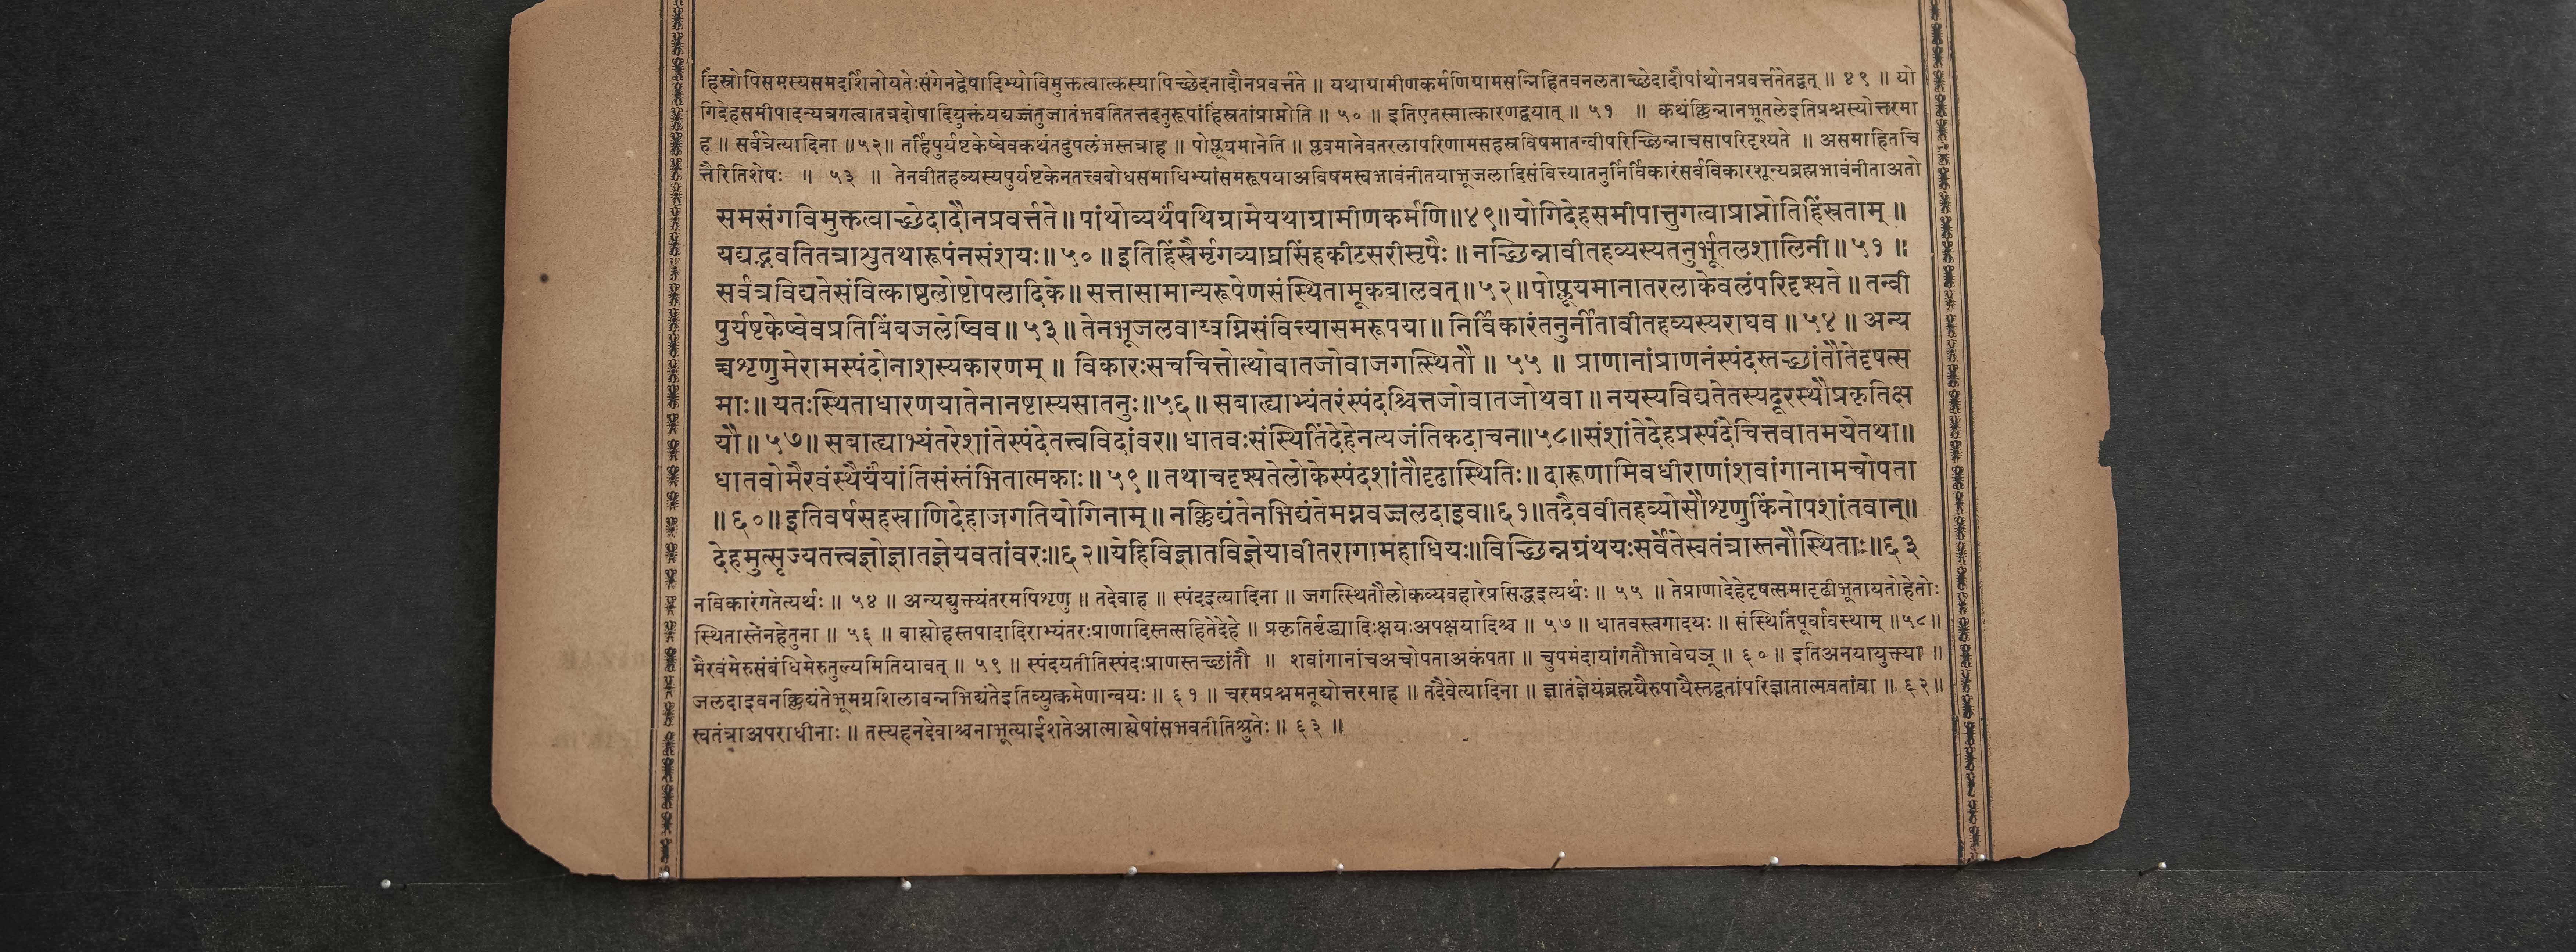 हिंस्रोपिसमस्यसमदर्शिनोयतेःसंगेनद्वेषादिभ्योविमुक्तत्वात्कस्यापिच्छेदनादौनप्रवर्त्तते ॥ यथायामीणकर्मणियामसन्निहितवनलताच्छेदादौपांथोनप्रवर्त्ततेतद्वत् ॥ ४९ ॥ यो
गिदेहसमीपादन्यत्रगत्वातत्रदोषादियुक्तंयद्यज्जंतुजातंभवतितत्तदनुरूपांहिंस्रतांप्राप्नोति ॥ ५० ॥ इतिएतस्मात्कारणद्वयात् ॥ ५१ ॥ कथंक्लिन्नानभूतलेइतिप्रश्नस्योत्तरमा
ह ॥ सर्वत्रेत्यादिना ॥५२॥ तर्हिपुर्यष्टकेष्वेवकथंतदुपलंभस्तत्राह ॥ पोप्लूयमानेति ॥ प्लवमानेवतरलापरिणामसहस्रविषमातन्वीपरिच्छिन्नाचसापरिदृश्यते ॥ असमाहितचि
त्तैरितिशेषः ॥ ५३ ॥ तेनवीतहव्यस्यपुर्यष्टकेनतत्त्वबोधसमाधिभ्यांसमरूपयाअविषमस्वभावंनीतयाभूजलादिसंवित्त्यातनुर्निर्विकारंसर्वविकारशून्यब्रह्मभावंनीताअतो
समसंगविमुक्तत्वाच्छेदादौनप्रवर्त्तते॥ पांथोव्यर्थंपथिग्रामेयथाग्रामीणकर्मणि॥४९॥ योगिदेहसमीपात्तुगत्वाप्राप्नोतिहिंस्रताम् ॥
यद्यद्भवतितत्राशुतथारूपंनसंशयः॥ ५० ॥ इतिहिंस्रैर्मृगव्याघ्रसिंहकीटसरीसृपैः ॥ नच्छिन्नावीतहव्यस्यतनुर्भूतलशालिनी ॥ ५१ ॥
सर्वत्रविद्यतेसंवित्काष्ठलोष्टोपलादिके॥ सत्तासामान्यरूपेणसंस्थितामूकबालवत्॥५२॥ पोप्लूयमानातरलाकेवलंपरिदृश्यते ॥ तन्वी
पुर्यष्टकेष्वेवप्रतिबिंबजलेष्विव॥ ५३॥ तेनभूजलवाय्वग्निसंवित्त्यासमरूपया॥ निर्विकारंतनुर्नीतावीतहव्यस्यराघव ॥ ५४ ॥ अन्य
च्चशृणुमेरामस्पंदोनाशस्यकारणम् ॥ विकारःसचचित्तोत्थोवातजोवाजगत्स्थितौ ॥ ५५ ॥ प्राणानांप्राणनंस्पंदस्तच्छांतौतेदृषत्स
माः॥ यतःस्थिताधारणयातेनानष्टास्यसातनुः॥५६॥ सबाह्याभ्यंतरंस्पंदश्चित्तजोवातजोथवा ॥ नयस्यविद्यतेतस्यदूरस्थौप्रकृतिक्ष
यौ॥ ५७॥ सबाह्याभ्यंतरेशांतेस्पंदेतत्त्वविदांवर॥ धातवःसंस्थितिंदेहेनत्यजंतिकदाचन॥५८॥संशांतेदेहप्रस्पंदेचित्तवातमयेतथा॥
धातवोमैरवंस्थैर्यंयांतिसंस्तंभितात्मकाः॥ ५९॥ तथाचदृश्यतेलोकेस्पंदशांतौदृढास्थितिः॥ दारूणामिवधीराणांशवांगानामचोपता
॥ ६०॥ इतिवर्षसहस्राणिदेहाजगतियोगिनाम्॥ नक्लिद्यंतेनभिद्यंतेमग्नवज्जलदाइव॥६१॥तदैववीतहव्योसौशृणुकिंनोपशांतवान्॥
देहमुत्सृज्यतत्त्वज्ञोज्ञातज्ञेयवतांवरः॥६२॥येहिविज्ञातविज्ञेयावीतरागामहाधियः॥विच्छिन्नग्रंथयःसर्वेतेस्वतंत्रास्तनौस्थिताः॥६३
नविकारंगतेत्यर्थः ॥ ५४ ॥ अन्यद्युक्त्यंतरमपिशृणु ॥ तदेवाह ॥ स्पंदइत्यादिना ॥ जगत्स्थितौलोकव्यवहारेप्रसिद्धइत्यर्थः ॥ ५५ ॥ तेप्राणादेहेदृषत्समादृढीभूतायतोहेतोः
स्थितास्तेनहेतुना ॥ ५६ ॥ बाह्योहस्तपादादिराभ्यंतरःप्राणादिस्तत्सहितेदेहे ॥ प्रकृतिर्वृद्ध्यादिःक्षयःअपक्षयादिश्च ॥ ५७॥ धातवस्त्वगादयः ॥ संस्थितिंपूर्वावस्थाम् ॥५८॥
मैरवंमेरुसंबंधिमेरुतुल्यमितियावत् ॥ ५९ ॥ स्पंदयतीतिस्पंदःप्राणस्तच्छांतौ ॥ शवांगानांचअचोपताअकंपता ॥ चुपमंदायांगतौभावेघञ् ॥ ६० ॥ इतिअनयायुक्त्या ॥
जलदाइवनक्लिद्यंतेभूमग्नशिलावन्नभिद्यंतेइतिव्युत्क्रमेणान्वयः ॥ ६१ ॥ चरमप्रश्नमनूद्योत्तरमाह ॥ तदैवेत्यादिना ॥ ज्ञातंज्ञेयंब्रह्मयैरुपायैस्तद्वतांपरिज्ञातात्मवतांवा ॥ ६२॥
स्वतंत्राअपराधीनाः ॥ तस्यहनदेवाश्चनाभूत्याईशतेआत्माह्येषांसभवतीतिश्रुतेः ॥ ६३ ॥